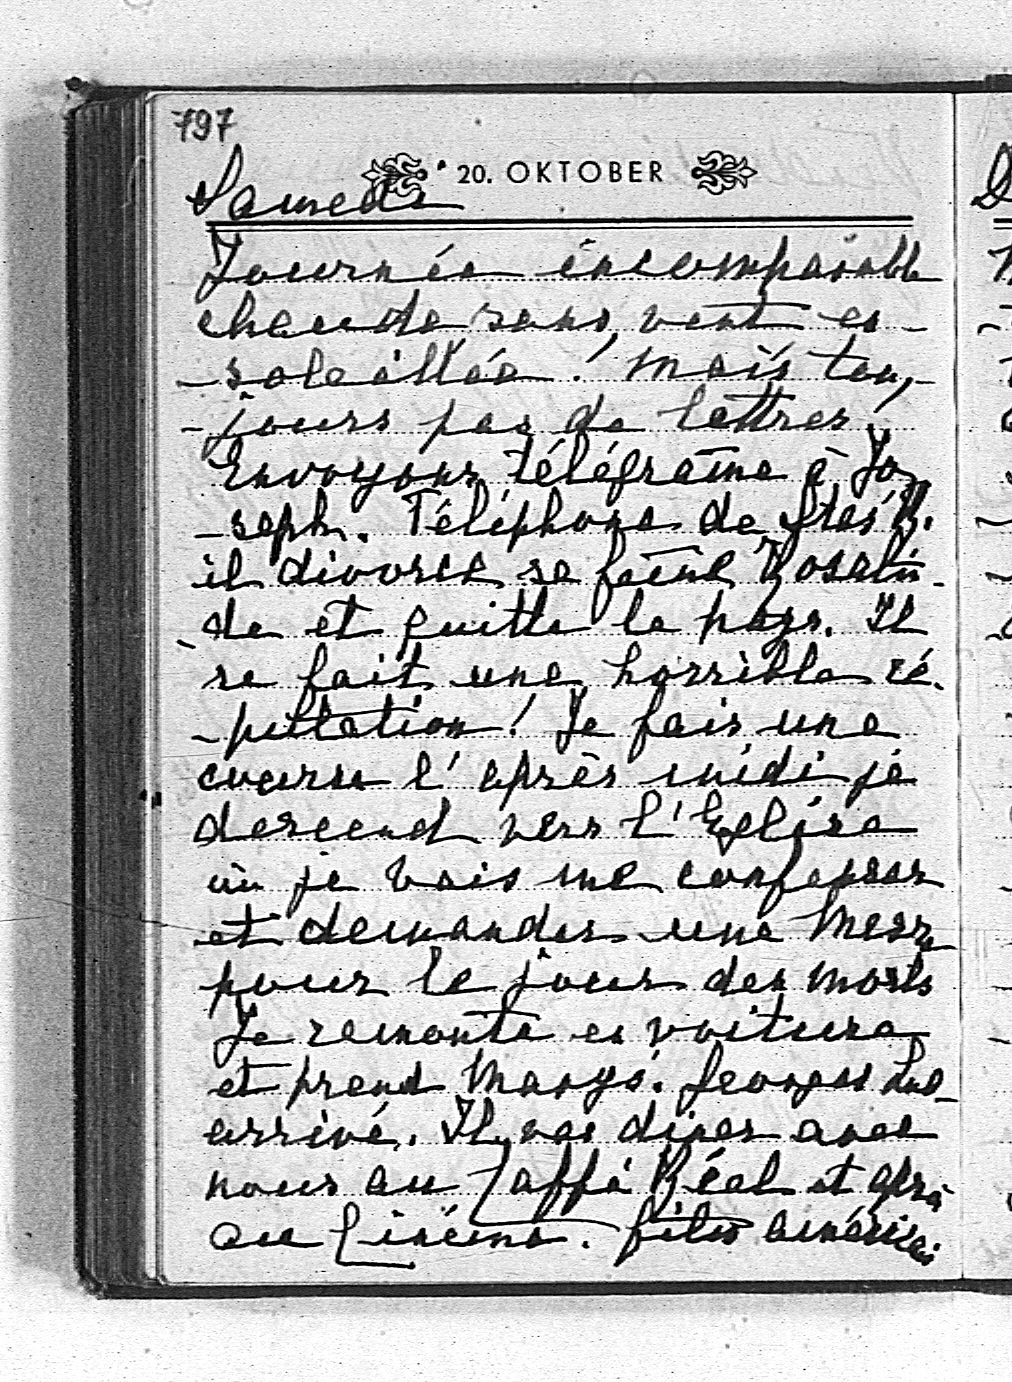 797
20. OKTOBER
Samedi
Journée incomparable
chaude sans vent en-
-soleillée! Mais tou-
-jours pas de lettres!
Envoyons télégrame à Jo
-seph. Téléphone de
il divorce sa feme Rosalin-
-de et quitte le pays. Il
se fait une horrible ré-
-putation! Je fais une
course l'après midi je
descend vers l'Eglise
où je vais me confesser
et demander une Messe
pour le jour des morts
Je remonte en voiture
et prend Margó. Georges
arrivé. Il vas diner avec
nous au Caffé Réal et après
au Cinéma. film américai